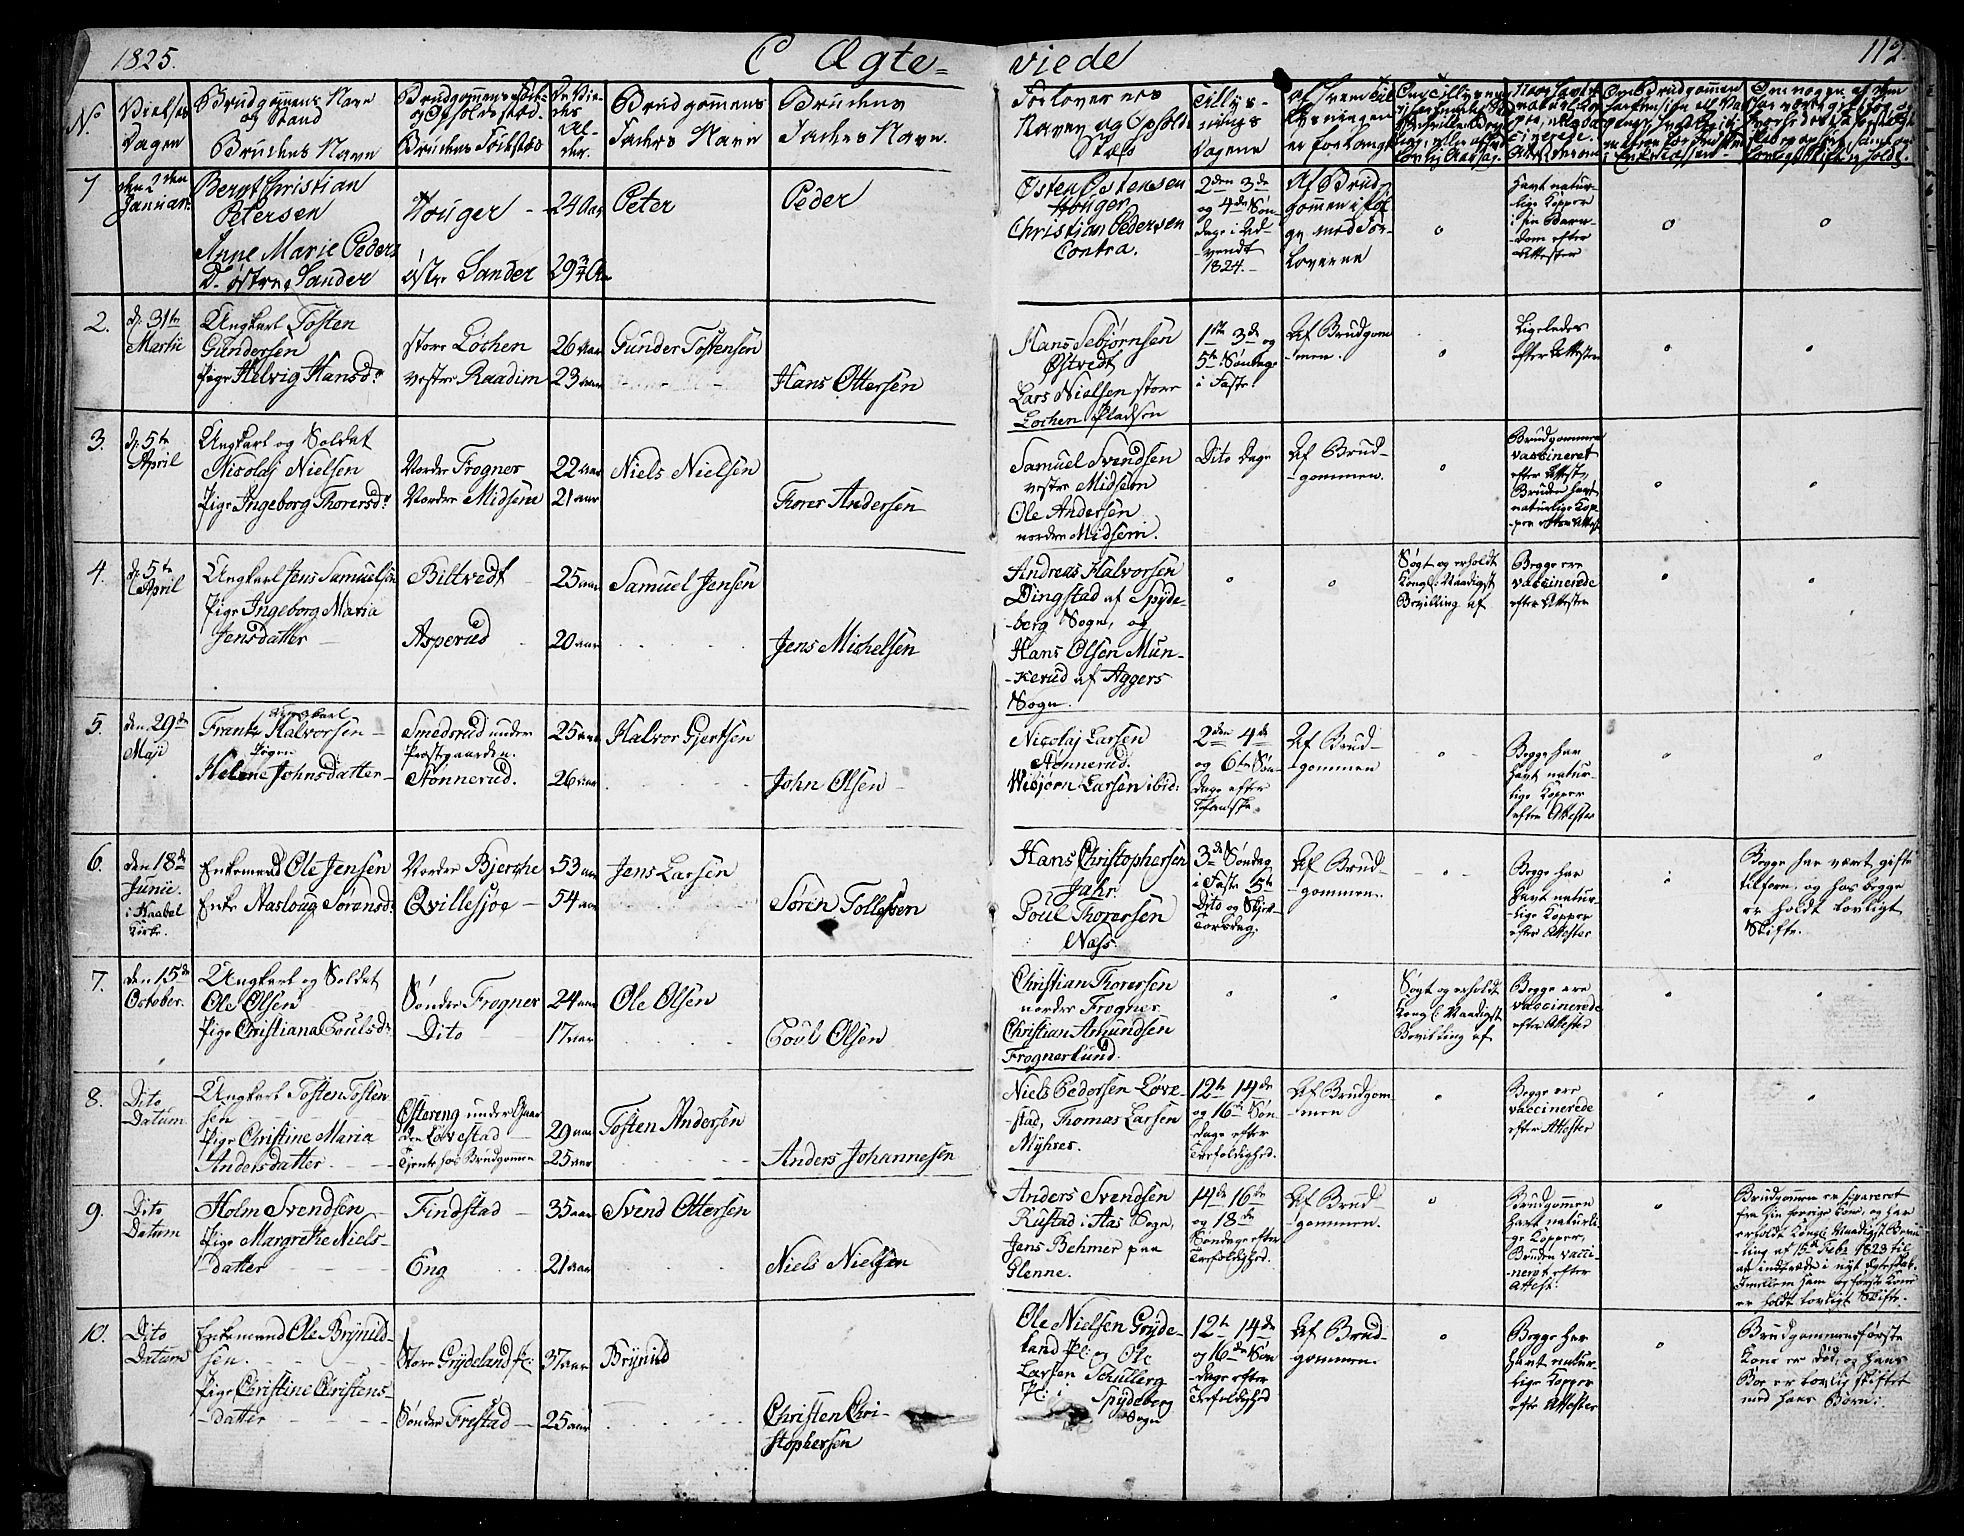 1825.
C Ægte-
viede
112.
No
Vielses
Dagen
Brudgommens Navn
og Stand
Brudens Navn
De Vie-
des
Al-
der.
Brudgommens
Faders Navn
Brudens
Faders Navn.
Forlovernes
Navne og Opholds
Stæd
Tillys-
nings
Dagene
1
den 2den
Januar.
Bernt Christian
Petersen
Anne Marie Peders
D. østre Sander
Houger
østre Sander
24 Aar
Peter
Peder
Østen Østensen
Hougen
Christian Pedersen
Contra.
2den 3de
og 4de Søn-
dage i Ad-
vendt
1824.
Af Brud-
gommen i føl-
ge med For-
loverne
o
Havt natur-
lige Kopper
i sin Barn-
dom efter
Attester
o
o
2.
d: 31te
Martii
Ungkarl Tosten
Gundersen
Pige Helvig Hansdr
store Lochen
vestre Raadim
26 aar
23 aar
Gunder Tostensen
Hans Ottersen
Hans Sebjørnsen
Østvedt
Lars Nielsen store
Lochen Pladsen
1ste 3de og
5te Søndage
i Faste.
Af Brudgom-
men.
o
Ligeledes
efter Attester
o
o
3.
d: 5te
April
Ungkarl og Soldat
Nicolaj Nielsen
Pige Ingeborg Thorersdr
Nordre Frogner
Nordre Midsem
22 aar
21 aar
Niels Nielsen
Torer Andersen
Samuel Svendsen
vestre Midsem
Ole Andersen
nordre Midsem.
Dito Dage
Af Brud-
gommen.
o
Brudgommen
vaccineret
efter Attest,
Bruden havt
naturlige Kop-
per efter Attest
o
o
4.
d: 5te
April
Ungkarl Jens Samuelsen
Pige Ingeborg Maria
Jensdatter
Biltvedt
Asperud
25 aar
20 aar
Samuel Jensen
Jens Michelsen
Andreas Halvorsen
Dingstad af Spyde-
berg Sogn, og
Hans Olsen Mun-
kerud af Aggers
Sogn.
o
o
Søgt og erholdt
Kongl: Naadigst
Bevilling af
Begge ere
vaccinerede
efter Attester
o
o
5.
den 29de
Maji
Ungkarl
Frantz Halvorsen
Pigen
Helene Johnsdatter
Smedsrud under
Præstgaarden.
Tønnerud.
25 aar
26 aar
Halvor Gjertsen
John Olsen
Nicolaj Larsen
Tønnerud.
Wibjørn Larsen ibid:
2den 4de
og 6te Søn-
dage efter
Paaske.
Af Brud-
gommen
o
Begge har
havt natur-
lige Kopper
efter Attester
o
o
6.
den 18de
Junii.
i Kraabel
Kirke.
Enkemand Ole Jensen
Enke Aaslaug Sørensdr
Nordre Bjerche
Qvillesjøe
53 aar
54 aar
Jens Larsen
Søren Tollefsen
Hans Christophersen
Jahr.
Poul Thorersen
Næss.
3de Søndag
i Faste 5te
Dito og Skjer-
Torsdag.
Af Brud-
gommen.
Begge har
havt natur-
lige Kopper
efter Attester
Begge har vært gifte
tilforn, og hos begge
er holdt lovligt
Skifte.
7.
den 15de
October.
Ungkarl og Soldat
Ole Olsen
Pige Christiana Poulsdr
Sønder Frogner
Dito
24 aar
17 aar
Ole Olsen
Povl Olsen
Christian Thorersen
nordre Frogner
Christian Amundsen
Frognerlund.
o
o
Søgt og erholdt
Kongl: Naadigst
Bevilling af
Begge ere
vaccinerede
efter Attester
o
o
8.
Dito
Datum
Ungkarl Tosten Tosten-
sen
Pige Christine Maria
Andersdatter
Østereng under Gaar-
den Løvestad
Tjente hos Brudgommen
29 aar
25 aar
Tosten Andersen
Anders Johannesen
Niels Pedersen Løve-
stad, Thomas Larsen
Myhrer.
12te 14de
og 16de Søn-
dage efter
Trefoldighed.
Af Brudgom-
men
o
Begge ere
vaccinerede
efter Attester
o
o
9.
Dito
Datum
Holm Svendsen
Pige Margrethe Niels-
datter
Findstad
Eng
35 aar
21 aar
Svend Ottersen
Niels Nielsen
Anders Svendsen
Rustad i Aas Sogn,
Jens Behmer paa
Glenne.
14de 16de
og 18de
Søndage efter
Trefoldighed.
Af Brud-
gommen.
o
Brudgommen
havt naturli-
ge Kopper,
Bruden vacci-
neret efter
Attest.
o
Brudgommen er separeret
fra sin forrige Kone, og har
erholdt Kongel: Naadigst Bevil-
ling af 15de Febr 1823 til
at indtræde i nyt Ægteskab.
Imellem ham og første Kone
er holdt lovligt Skifte.
10.
Dito
Datum
Enkemand Ole Brynild-
sen.
Pige Christine Christens-
datter
Store Grydeland Pl:
Sønder Frestad
37 aar
25 aar
Brynild
Christen Chri-
stophersen
Ole Nielsen Gryde-
land Pl: og Ole
Larsen Schulerg
Pl: Spydeberg
Sogn
12te 14de
og 16de Søn-
dage efter
Trefoldighed
Af Brud-
gommen.
o
Begge har
havt natur-
lige Kopper
efter Attester
o
Brudgommens første
Kone er død, og hans
Boe er lovlig skiftet
med hans Børn.